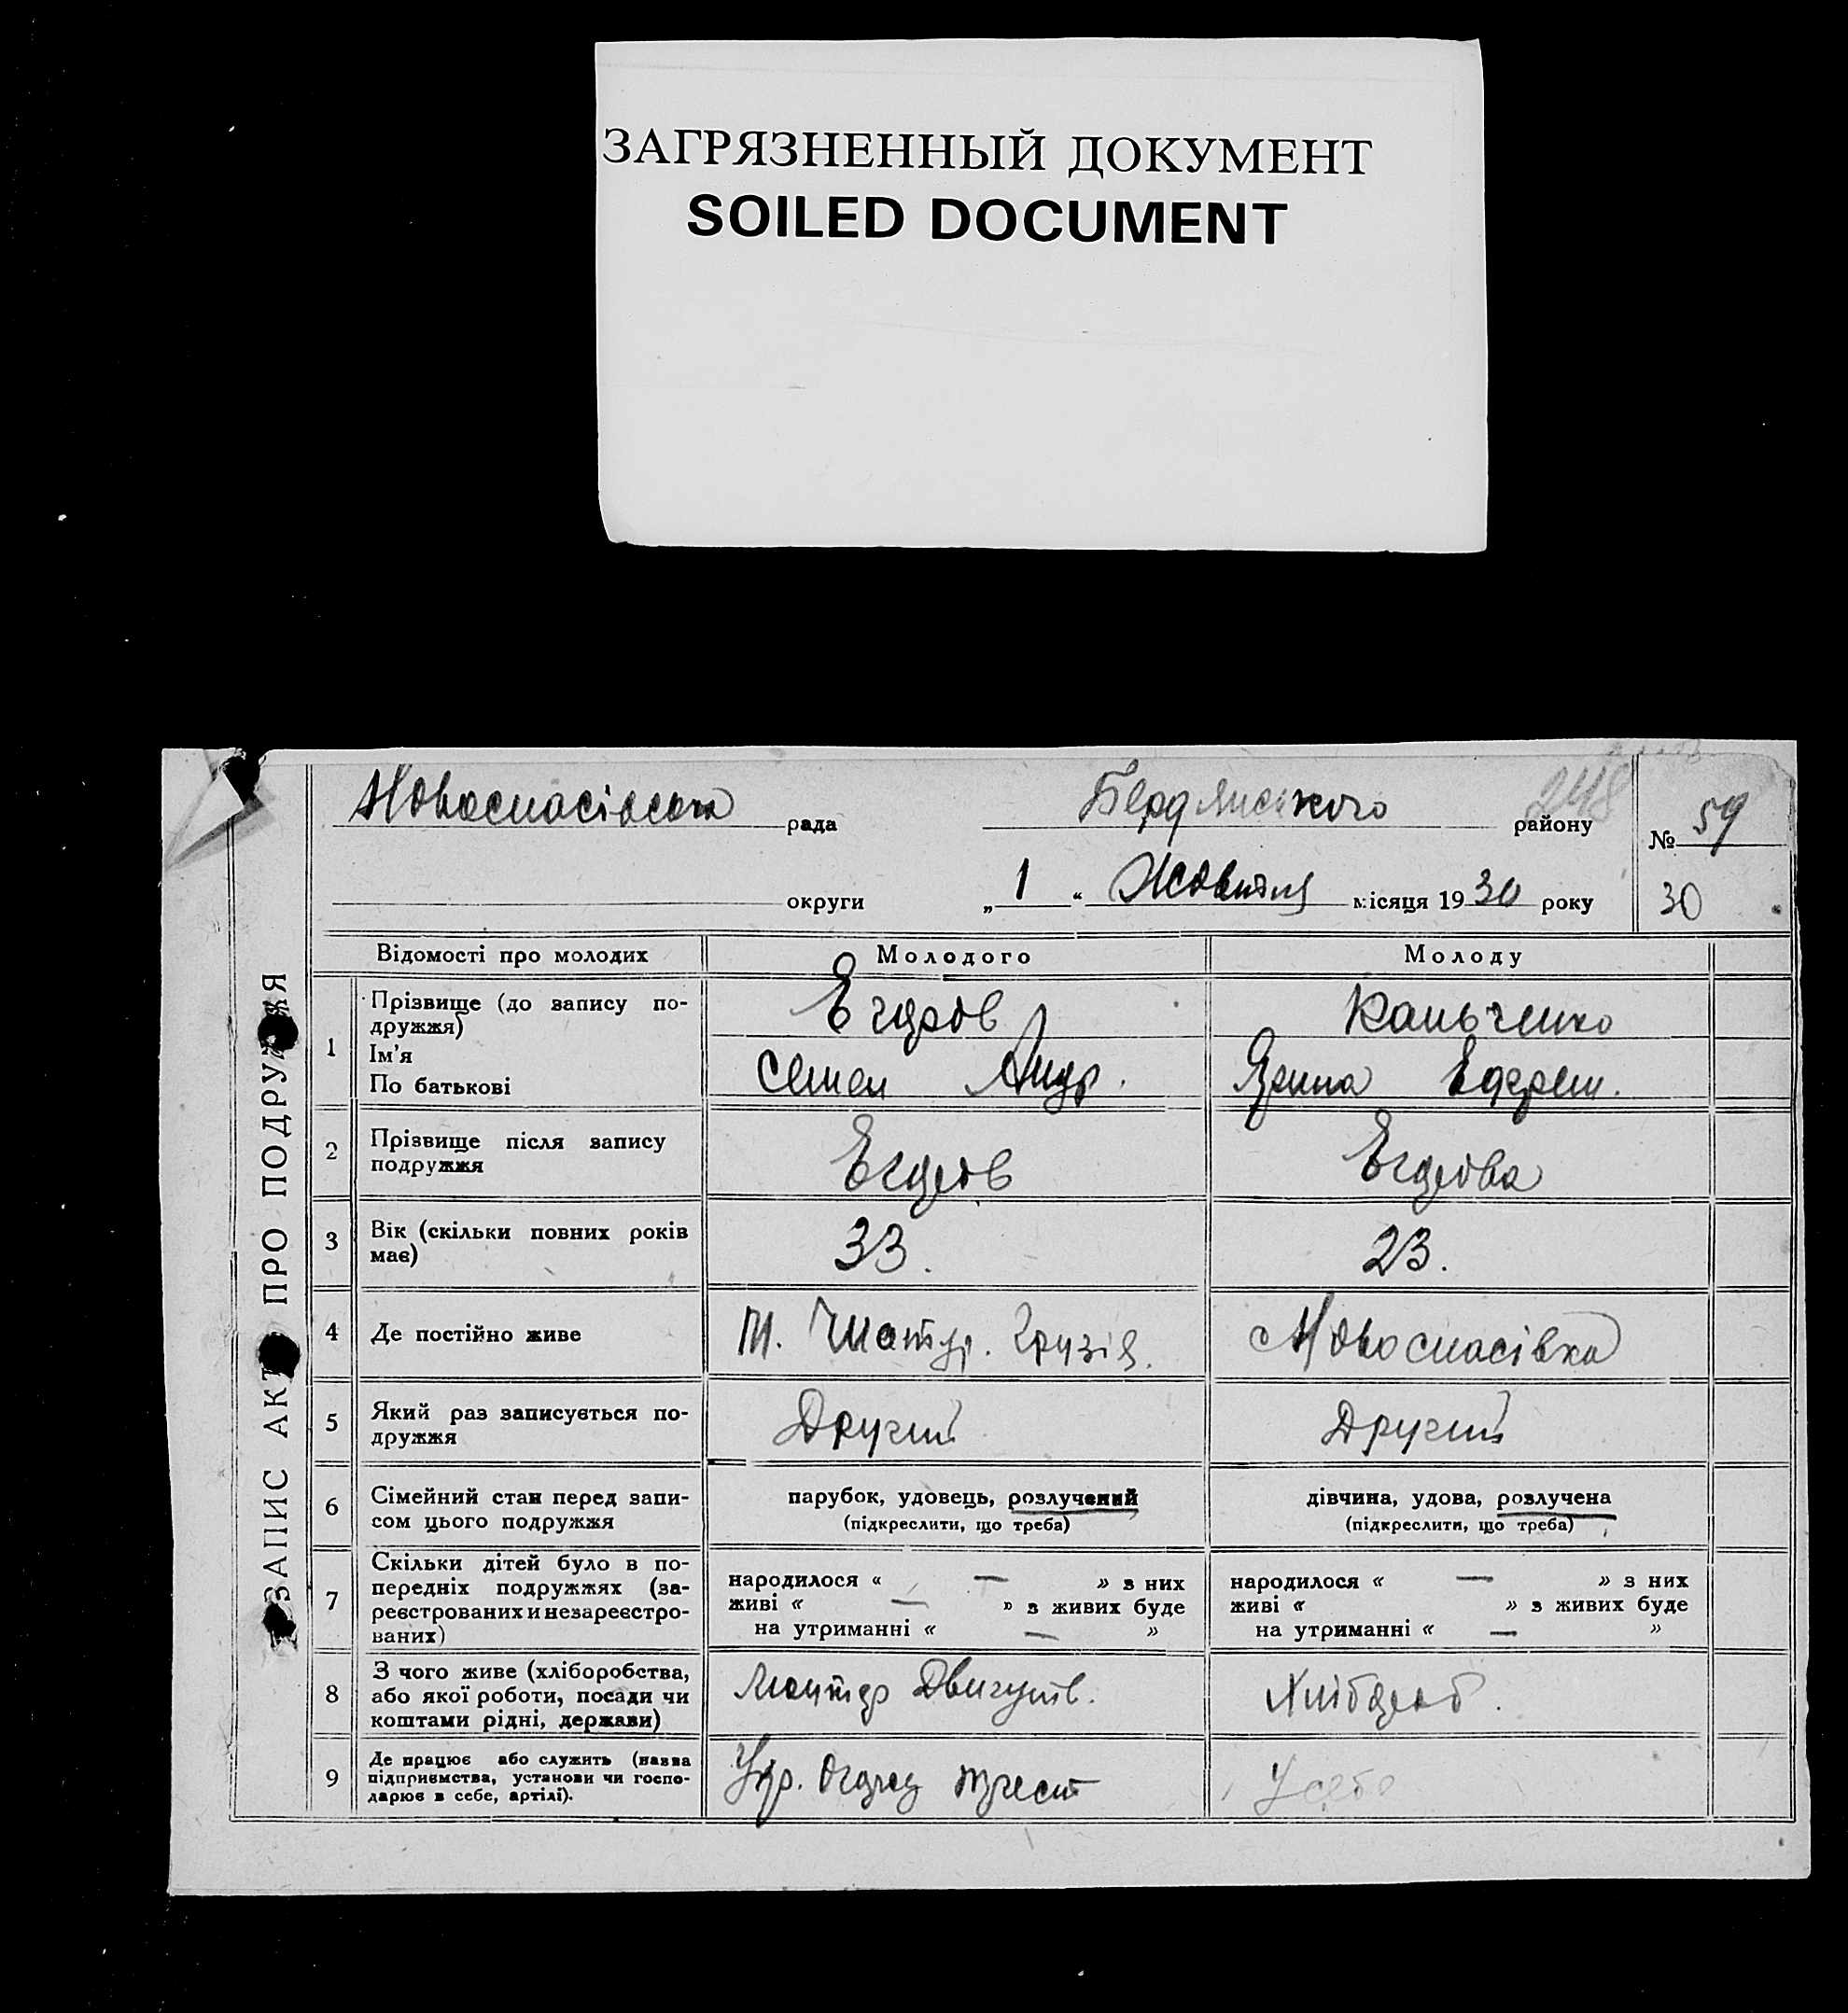 ЗАГРЯЗНЕННЫЙ ДОКУМЕНТ
SOILED DOCUMENT
Новоспасівська рада Бердянського району № 59
248
округи „ 1 “ Жовтня місяця 1930 року 30
ЗАПИС АКТ ПРО ПОДРУЖЖЯ
Відомості про молодих Молодого Молоду
1 Прізвище (до запису по-
дружжя)
Ім’я
По батькові
Егоров
Семен Андр.
Каньченко
Ярина Ефрем.
2 Прізвище після запису
подружжя
Егоров Егорова
3 Вік (скільки повних років
має)
33. 23.
4 Де постійно живе Грузія. Новоспасівка
5 Який раз записується по-
дружжя
Другий Другий
6 Сімейний стан перед запи-
сом цього подружжя
парубок, удовець, розлучений
(підкреслити, що треба)
дівчина, удова, розлучена
(підкреслити, що треба)
7 Скільки дітей було в по-
передніх подружжях (за-
реєстрованих и незареєстро-
ваних)
народилося « — » з них
живі « — » з живих буде
на утриманні « — »
народилося « — » з них
живі « » з живих буде
на утриманні « — »
8 З чого живе (хліборобства,
або якої роботи, посади чи
коштами рідні, держави)
Монтер Двигунів. Хлібороб.
9 Де працює або служить (назва
підприємства, установи чи госпо-
дарює в себе, артілі).
Укр. трест
У себе